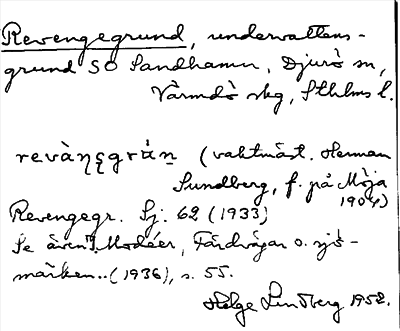 Revengegrund, undervattens-
grund SO Sandhamn, Djurö sn,
Värmdö skg, Sthlms l.
revàŋęgrúṇ (vaktmäst. Herman
Sundberg, f. på Möja
1904)
Revengegr. Sj. 62 (1933)
Se även I. Modéer, Färdvägar o. sjö-
märken.. (1936), s. 55.
Helge Lindberg 1952.